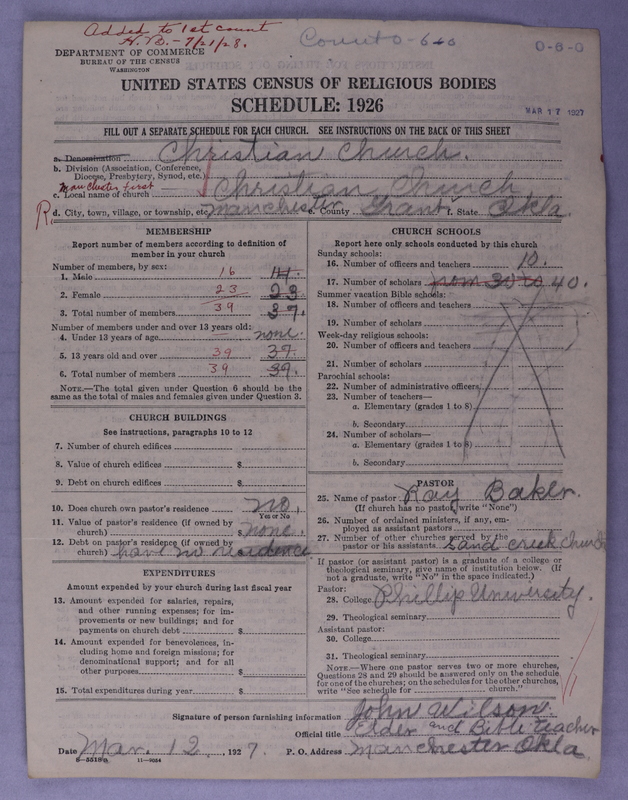 Added to 1st count
H.B. - 7/21/28.
Count 0-6-0
0-8-0
DEPARTMENT OF COMMERCE
BUREAU OF THE CENSUS
WASHINGTON
UNITED STATES CENSUS OF RELIGIOUS BODIES
SCHEDULE: 1926
MAR 17 1927
FILL OUT A SEPARATE SCHEDULE FOR EACH CHURCH. SEE INSTRUCTIONS ON THE BACK OF THIS SHEET
a. Denomination Christian Church.
b. Division (Association, Conference,
Diocese, Presbytery, Synod, etc.)
Manchester First
c. Local name of church Christian Church
R d. City, town, village, or township, etc. Manchester e. County Grant f. State Okla.
MEMBERSHIP
Report number of members according to definition of
member in your church
Number of members, by sex:
1. Male 16 14.
2. Female 23 23
3. Total number of members 39 37.
Number of members under and over 13 years old:
4. Under 13 years of age none.
5. 13 years old and over 39 37.
6. Total number of members 39 39.
NOTE.—The total given under Question 6 should be the
same as the total of males and females given under Question 3.
CHURCH BUILDINGS
See instructions, paragraphs 10 to 12
7. Number of church edifices
8. Value of church edifices $
9. Debt on church edifices $
10. Does church own pastor's residence no.
Yes or No
11. Value of pastor's residence (if owned by
church) $ none.
12. Debt on pastor's residence (if owned by
church) have no residence
EXPENDITURES
Amount expended by your church during last fiscal year
13. Amount expended for salaries, repairs,
and other running expenses; for im-
provements or new buildings; and for
payments on church debt $
14. Amount expended for benevolences, in-
cluding home and foreign missions; for
denominational support; and for all
other purposes $
15. Total expenditures during year $
CHURCH SCHOOLS
Report here only schools conducted by this church
Sunday schools:
16. Number of officers and teachers 10.
17. Number of scholars from 30 to 40.
Summer vacation Bible schools:
18. Number of officers and teachers
19. Number of scholars
Week-day religious schools:
20. Number of officers and teachers
21. Number of scholars
Parochial schools:
22. Number of administrative officers
23. Number of teachers—
a. Elementary (grades 1 to 8)
b. Secondary
24. Number of scholars—
a. Elementary (grades 1 to 8)
b. Secondary
PASTOR
25. Name of pastor Ray Baker.
(If church has no pastor, write "None")
26. Number of ordained ministers, if any, em-
ployed as assistant pastors
27. Number of other churches served by the
pastor or his assistants Sand creek Church
If pastor (or assistant pastor) is a graduate of a college or
theological seminary, give name of institution below. (If
not a graduate, write "No" in the space indicated.)
Pastor:
28. College Phillip University.
29. Theological seminary
Assistant pastor:
30. College
31. Theological seminary
NOTE.—Where one pastor serves two or more churches,
Questions 28 and 29 should be answered only on the schedule
for one of the churches; on the schedules for the other churches,
write "See schedule for church."
Signature of person furnishing information John Wilson.
Official title Elder and Bible teacher
Date Mar. 12, 1927. P. O. Address Manchester Okla.
11—9054